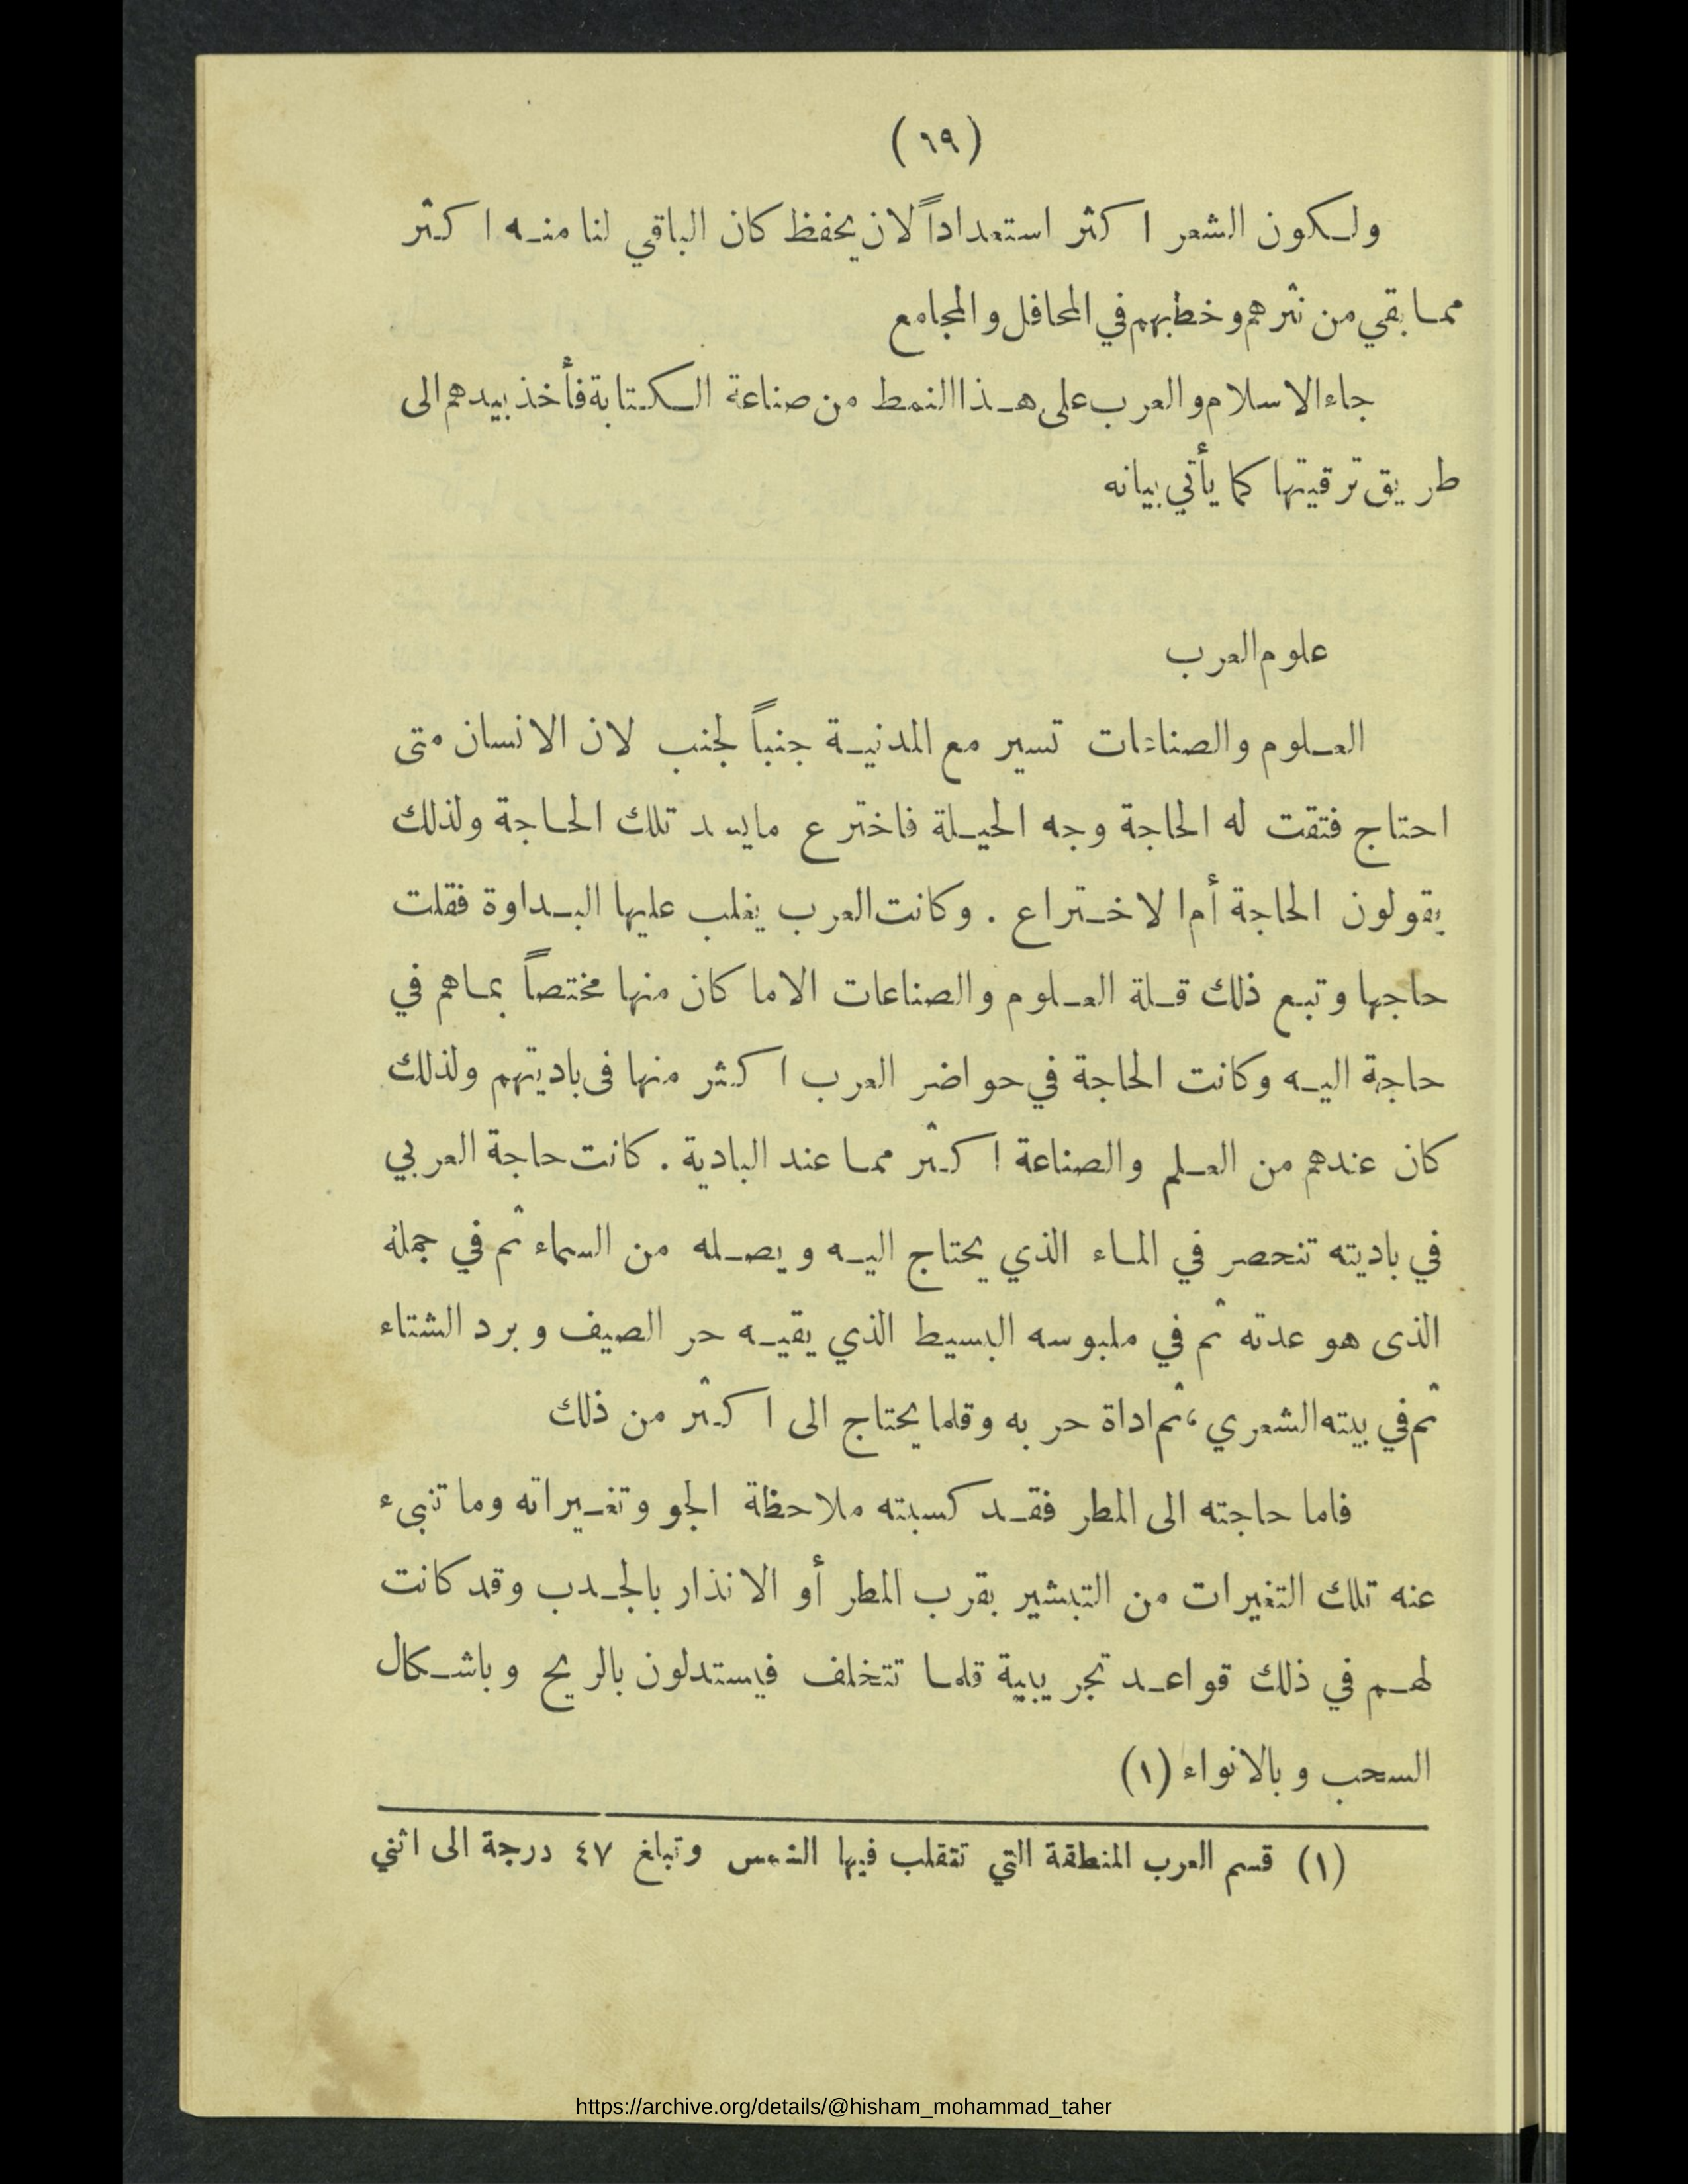 (٦٩)
ولكون الشعر اكثر استعداداً لان يحفظ كان الباقي لنا منه اكثر
مما بقي من نثرهم وخطبهم في المحافل والمجامع
جاء الاسلام والعرب على هذا النمط من صناعة الكتابة فأخذ بيدهم الى
طريق ترقيتها كما يأتي بيانه
علوم العرب
العلوم والصناعات تسير مع المدنية جنباً لجنب لان الانسان متى
احتاج فتقت له الحاجة وجه الحيلة فاخترع مايسد تلك الحاجة ولذلك
يقولون الحاجة أم الاختراع . وكانت العرب يغلب عليها البداوة فقلت
حاجها وتبع ذلك قلة العلوم والصناعات الا ما كان منها مختصاً بماهم في
حاجة اليه وكانت الحاجة في حواضر العرب اكثر منها فى باديتهم ولذلك
كان عندهم من العلم والصناعة اكثر مما عند البادية . كانت حاجة العربي
في باديته تنحصر في الماء الذي يحتاج اليه ويصله من السماء ثم في جمله
الذى هو عدته ثم في ملبوسه البسيط الذي يقيه حر الصيف وبرد الشتاء
ثم في بيته الشعري ، ثم اداة حربه وقلما يحتاج الى اكثر من ذلك
فاما حاجته الى المطر فقد كسبته ملاحظة الجو وتغيراته وما تنبىء
عنه تلك التغيرات من التبشير بقرب المطر أو الانذار بالجدب وقد كانت
لهم في ذلك قواعد تجريبية قلما تتخلف فيستدلون بالريح وباشكال
السحب وبالانواء (١)
(١) قسم العرب المنطقة التي تتقلب فيها الشمس وتبلغ ٤٧ درجة الى اثني
https://archive.org/details/@hisham_mohammad_taher